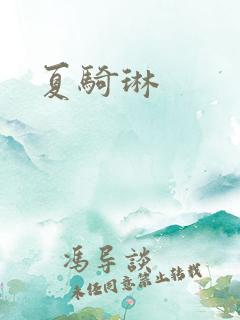 夏騎琳
馮导談
未任同意禁止转载